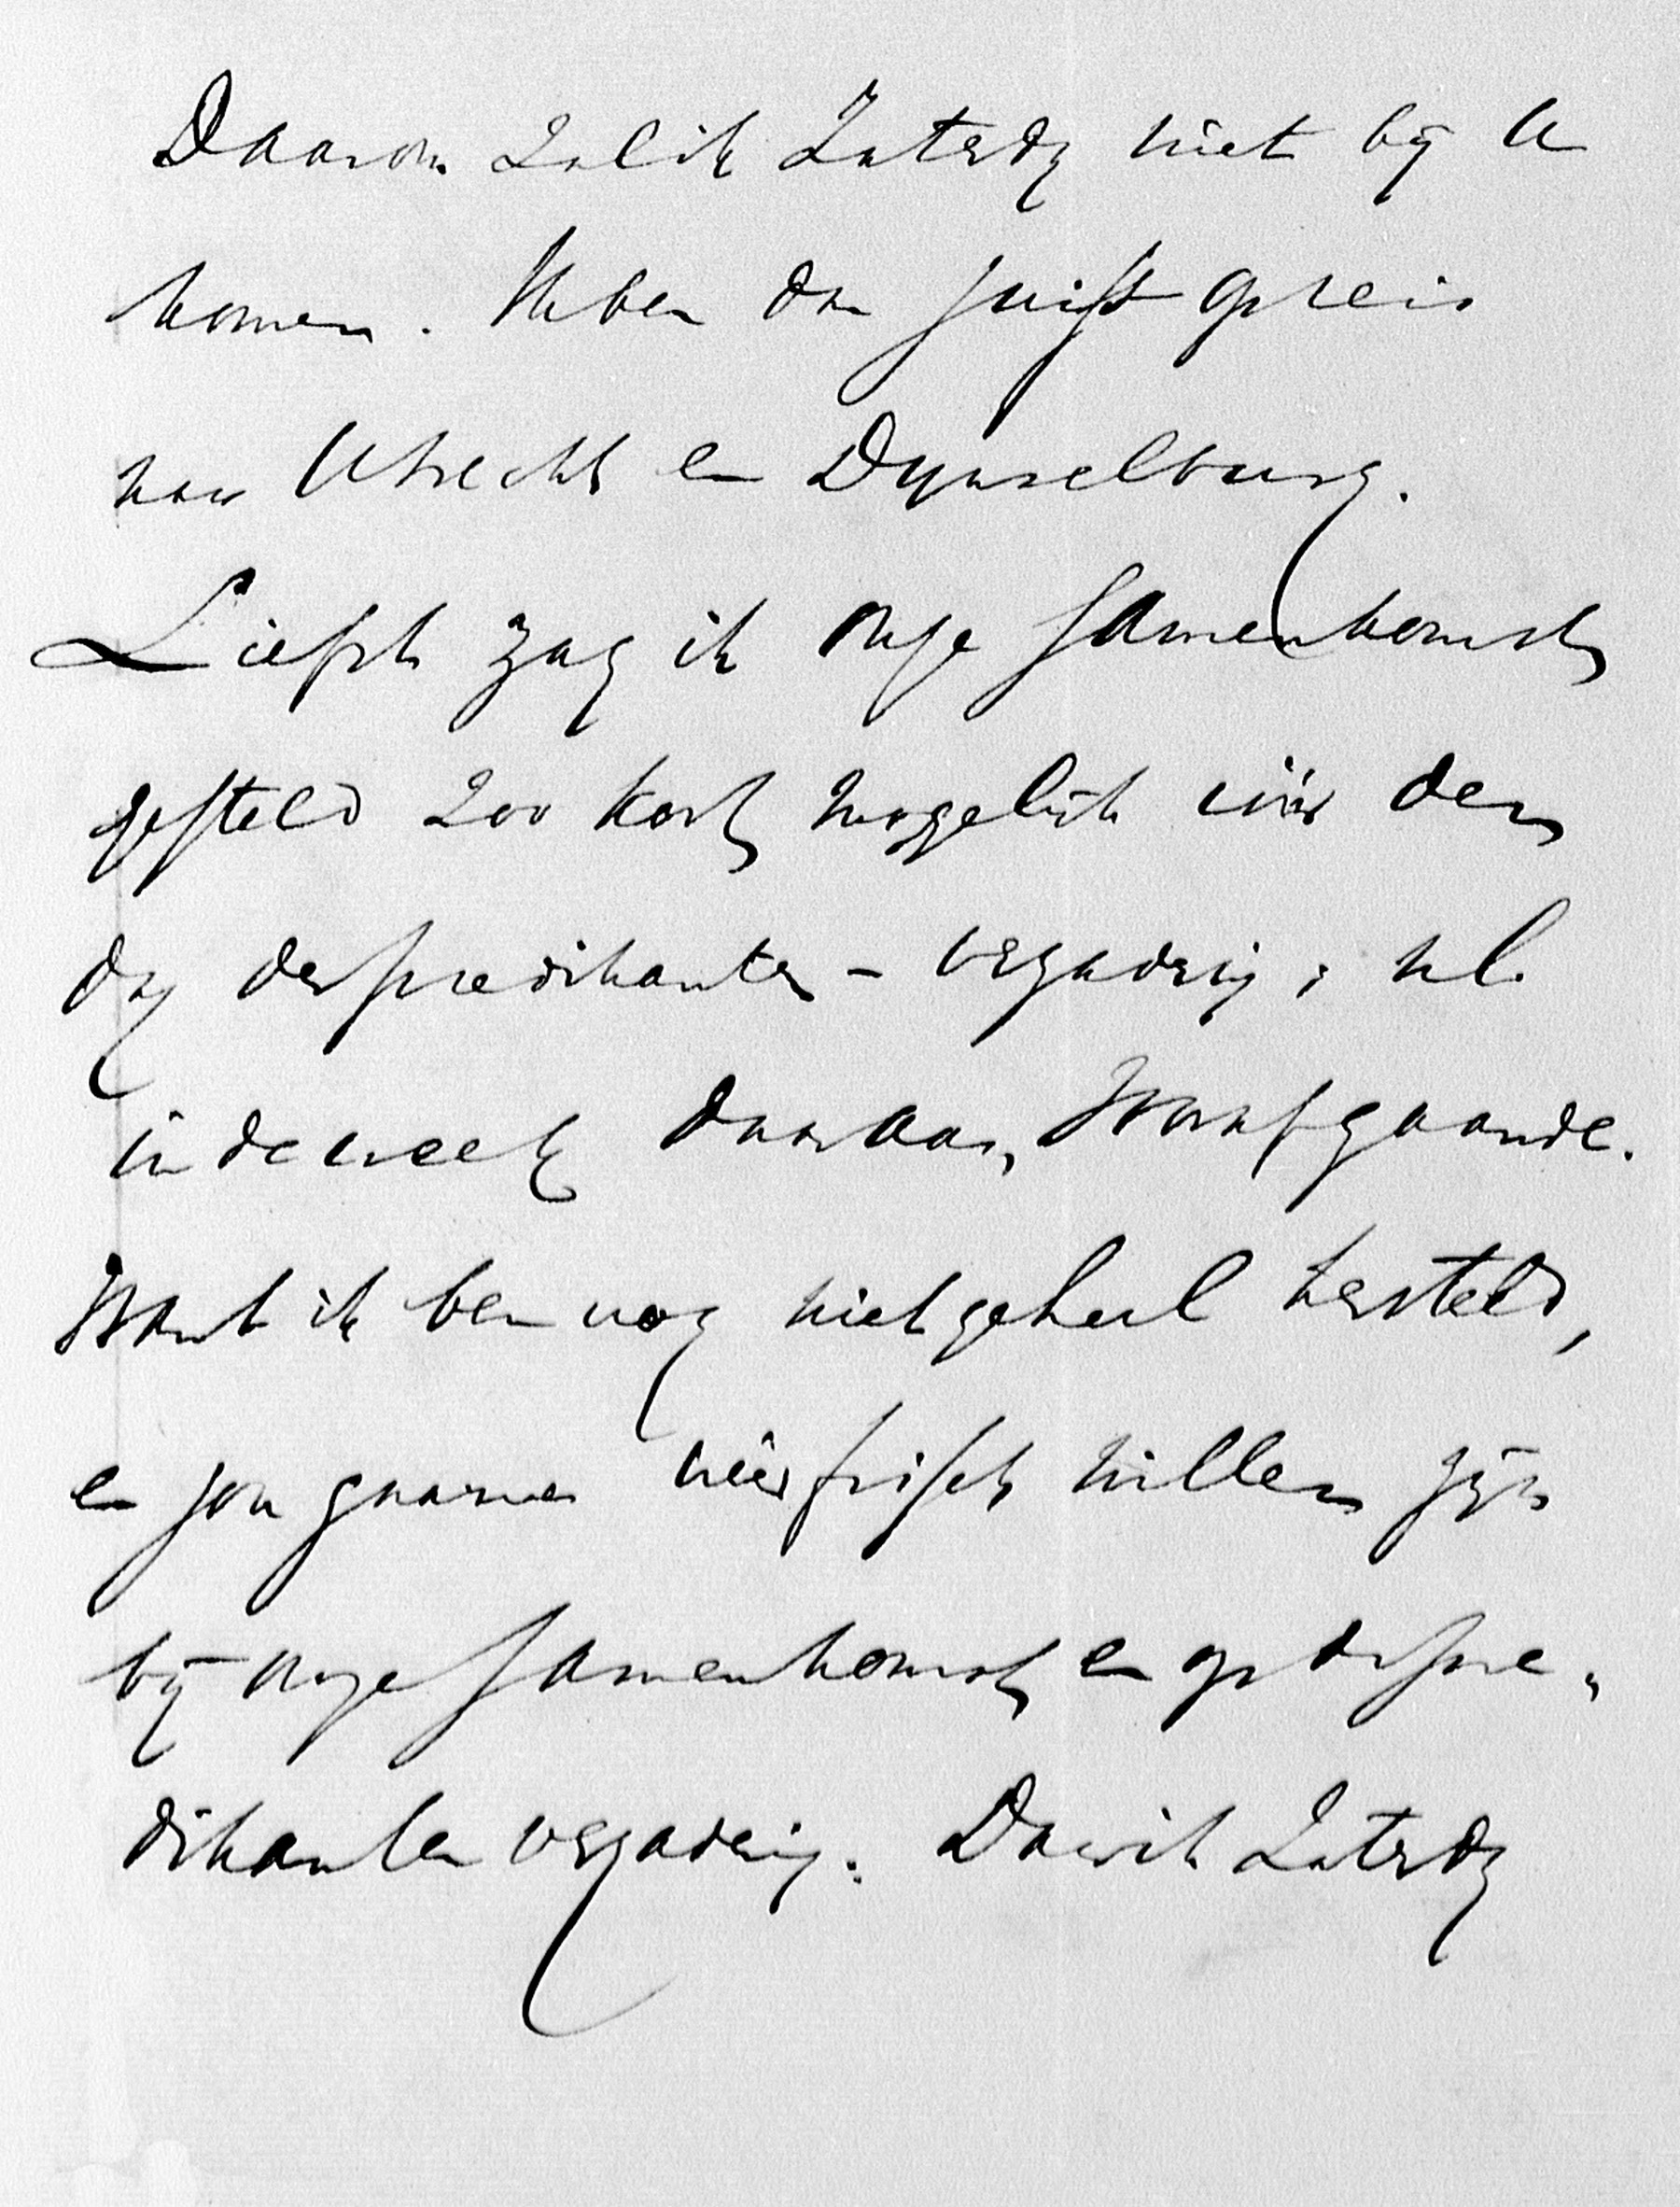 Daarom zal ik Zaterdg niet bij U
komen. Ik ben dan juist op reis
naar Utrecht en Dynselburg.
Liefst zag ik onze samenkomst
gesteld zoo kort mogelijk vóór den
dag der predikanten-vergadering; nl.
in de week daaraan voorafgaande.
Want ik ben nog niet geheel hersteld,
en zou gaarne weer frisch willen zijn
bij onze samenkomst en op de pre-
dikanten vergadering. Daar ik Zaterdg